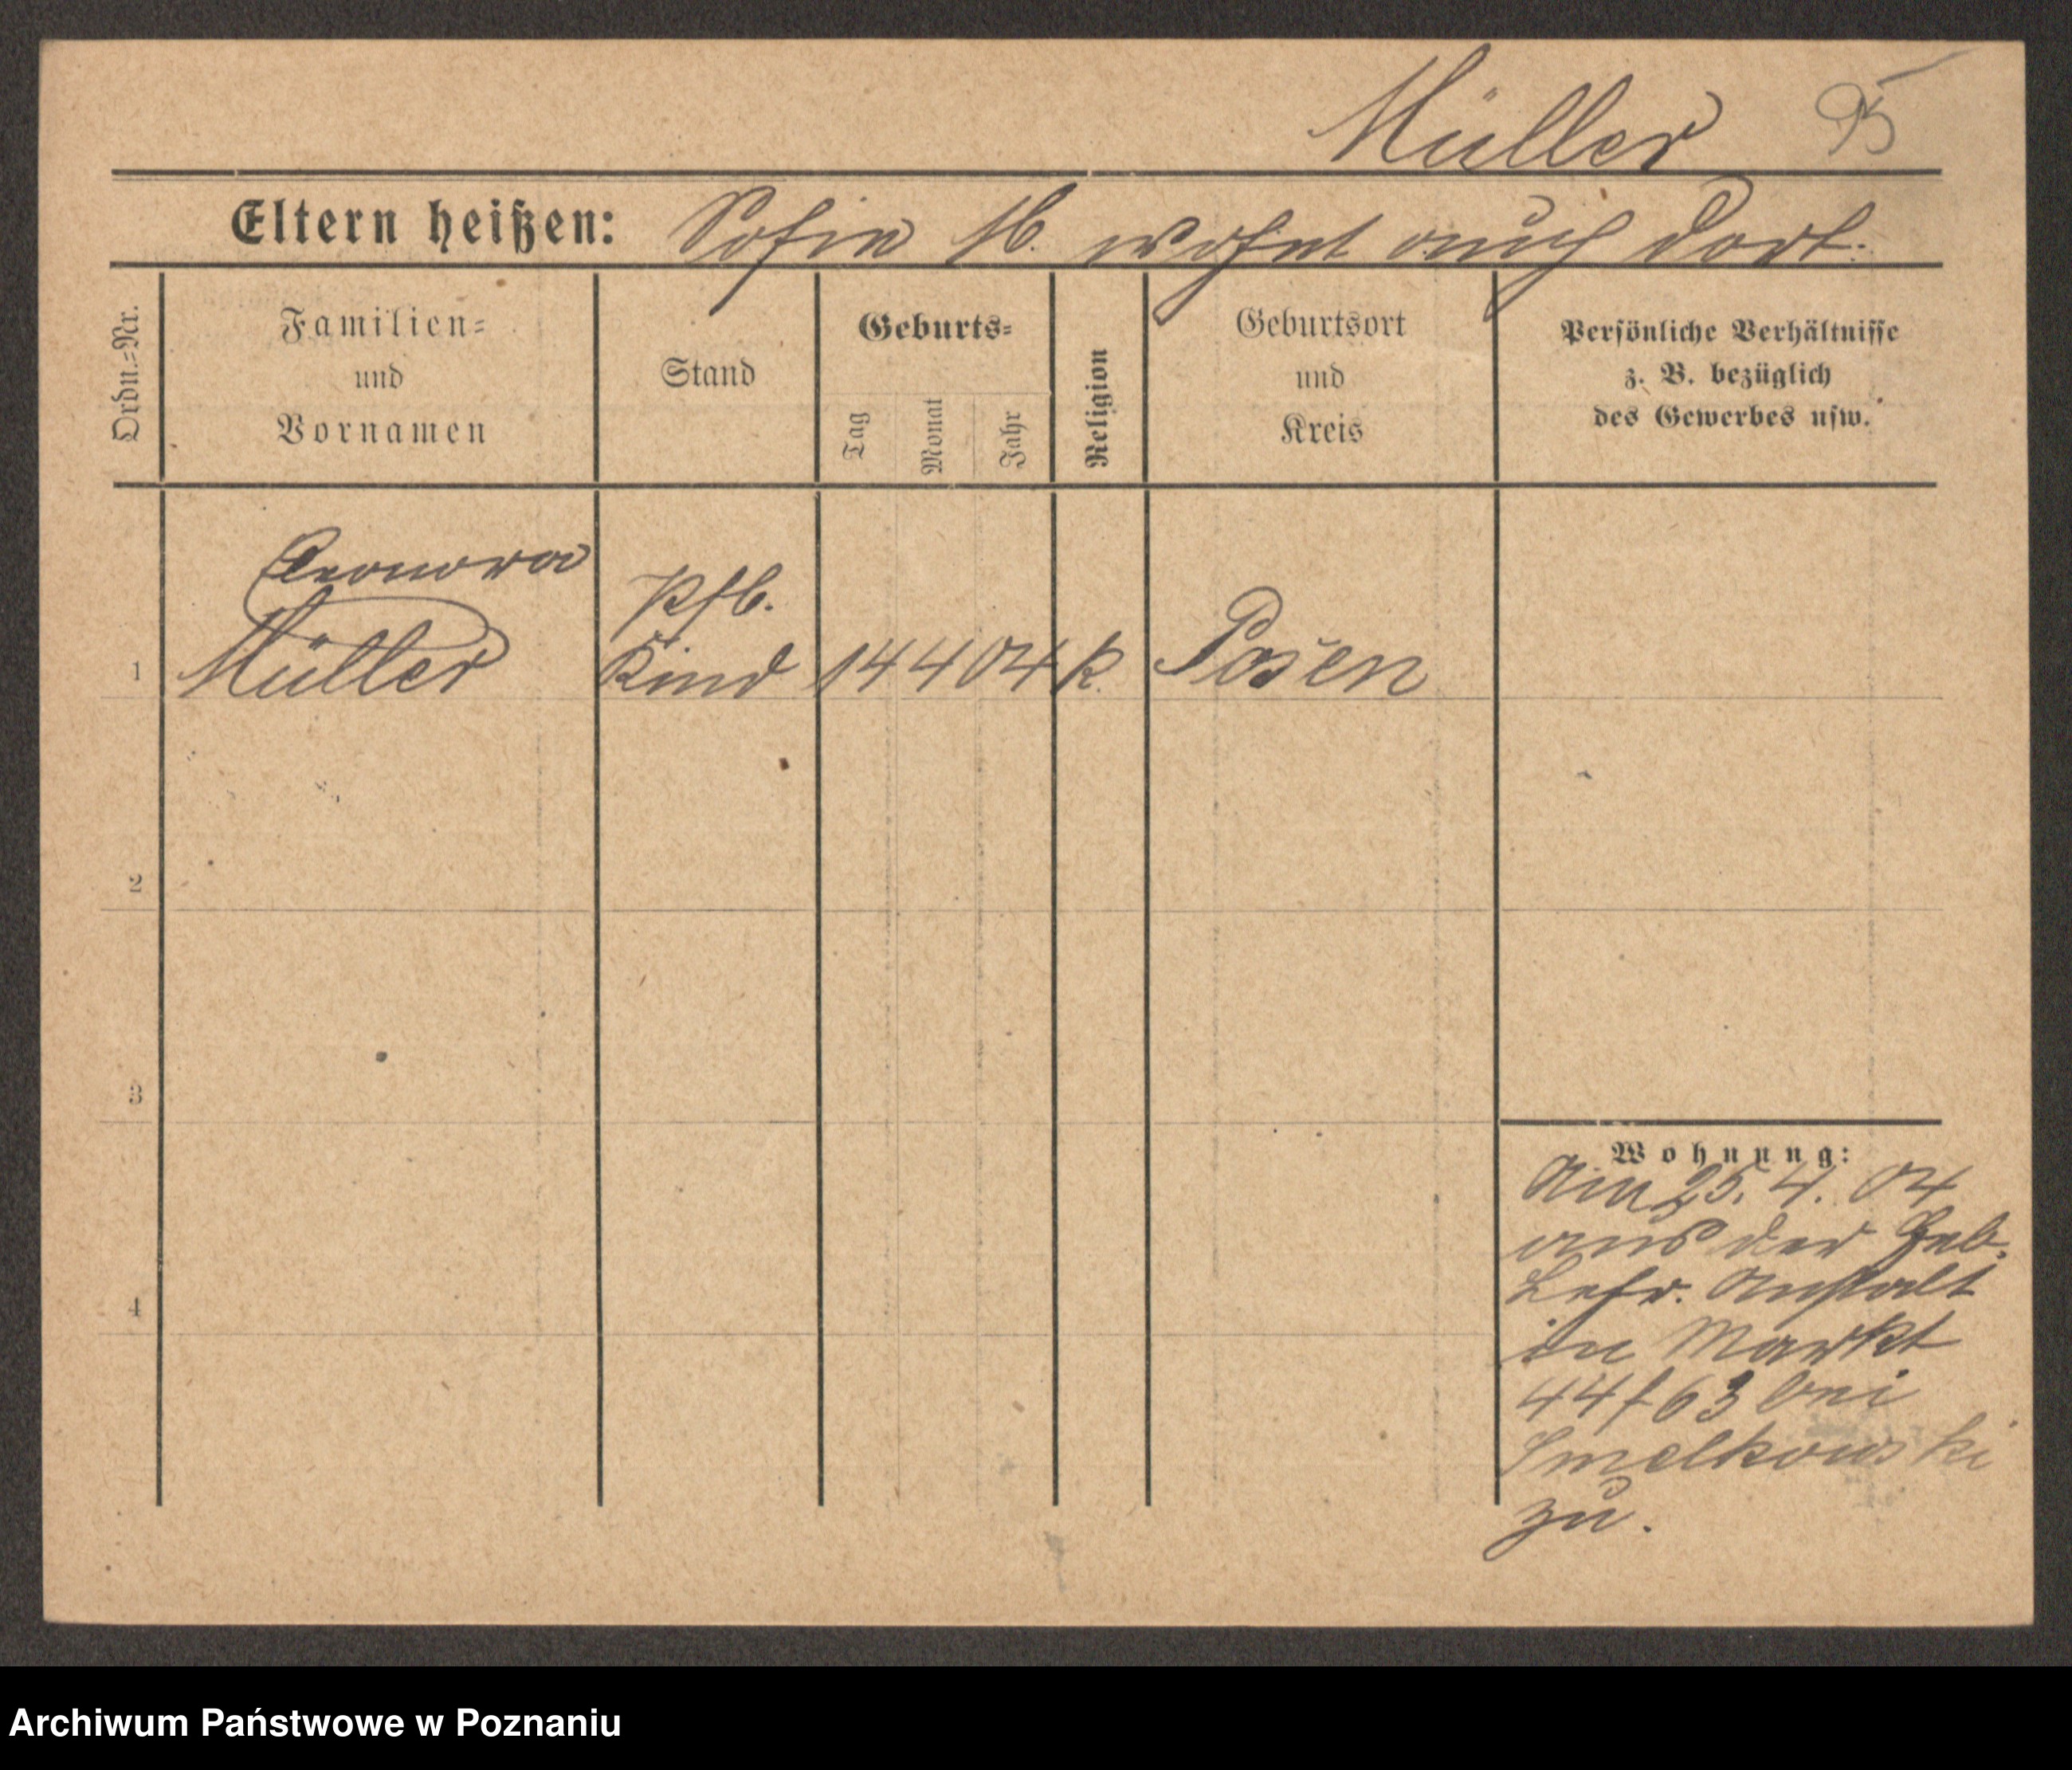 Müller 95
Eltern heißen: Sofie M. wohnt auch dort.
Ordn.=Nr.
Familien=
und
Vornamen
Stand
Geburts=
Tag
Monat
Jahr
Religion
Geburtsort
und
Kreis
Persönliche Verhältnisse
z. B. bezüglich
des Gewerbes usw.
Eleonora
Pfl.
1 Müller Kind 14 4 04 k. Posen
2
3
4
Wohnung:
Am 25. 4. 04
aus der Heb.
Lehr. Anstalt
in Markt
44 f 63 bei
Smelkowski
zu.
Archiwum Państwowe w Poznaniu